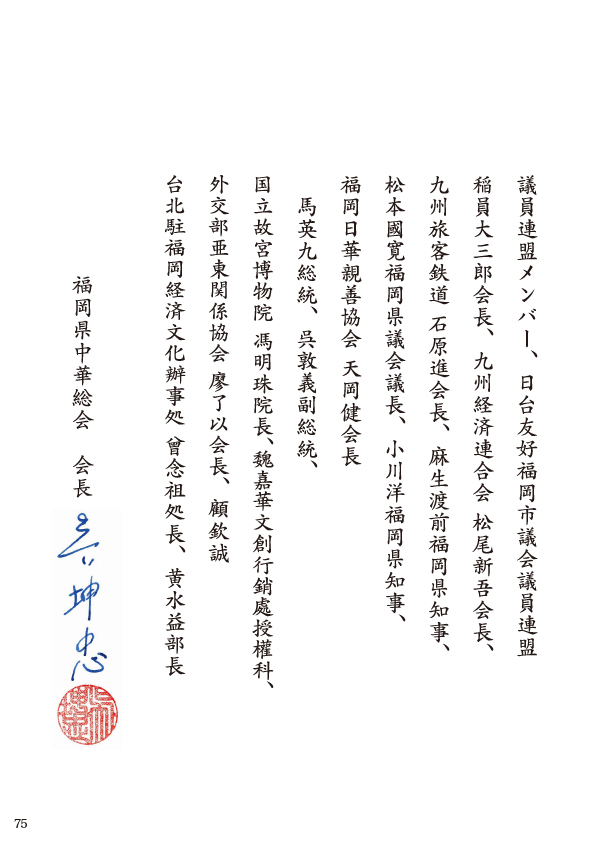 議員連盟メンバー、日台友好福岡市議会議員連盟
稲員大三郎会長、九州経済連合会 松尾新吾会長、
九州旅客鉄道 石原進会長、麻生渡前福岡県知事、
松本國寛福岡県議会議長、小川洋福岡県知事、
福岡日華親善協会 天岡健会長
馬英九総統、呉敦義副総統、
国立故宮博物院 馮明珠院長、魏嘉華文創行銷處授權科、
外交部亜東関係協会 廖了以会長、顧欽誠
台北駐福岡経済文化辦事処 曾念祖処長、黄水益部長
福岡県中華総会 会長
坤忠
75